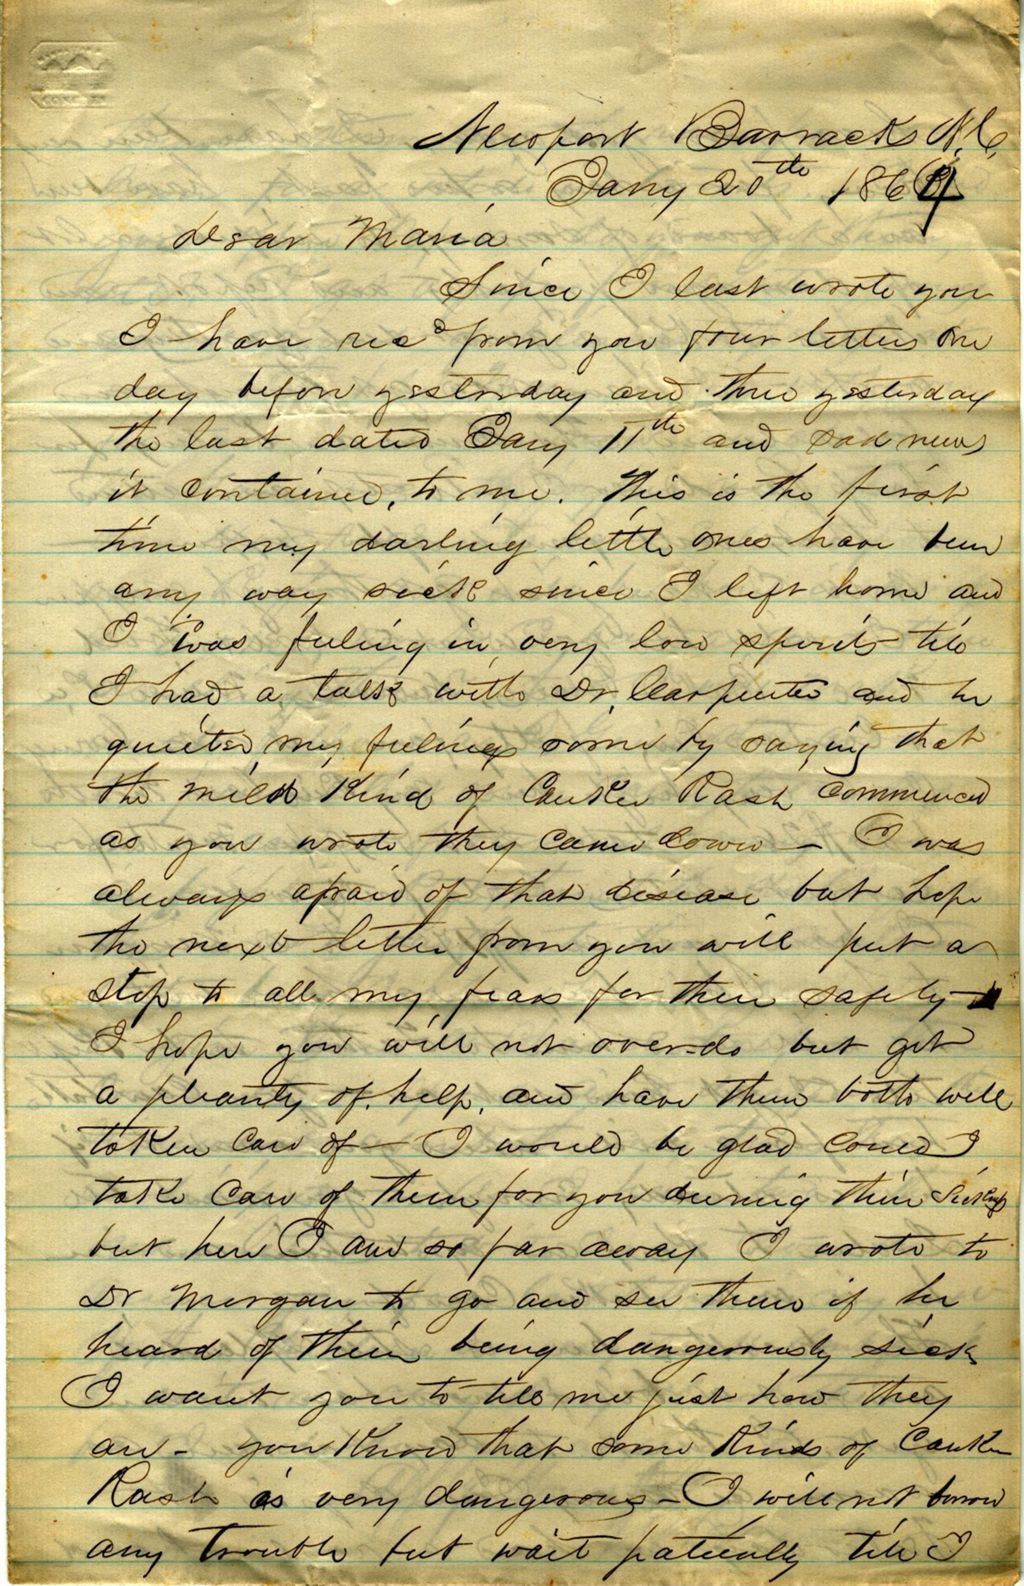 Newport Barracks N.C.
Jany 20th 1864
Dear Maria
Since I last wrote you
I have recd from you four letters one
day before yesterday and three yesterday
the last dated Jany 11th and sad news
it contained, to me. This is the first
time my darling little ones have been
any way sick since I left home and
I was feeling in very low spirits till
I had a talk with Dr. Carpenter and he
quieted my feelings some by saying that
the mild kind of Canker Rash commenced
as you wrote they came down – I was
always afraid of that disease but hope
the next letter from you will put a
stop to all my fears for their safety –
I hope you will not over-do but get
a pleanty of help, and have them both well
taken care of – I would be glad could I
take care of them for you during their
but here I am so far away I wrote to
Dr Morgan to go and see them if he
heard of their being dangerously sick
I want you to tell me just how they
are – you know that some kinds of Canker
Rash is very dangerous – I will not borrow
any trouble but wait patieatlly till I